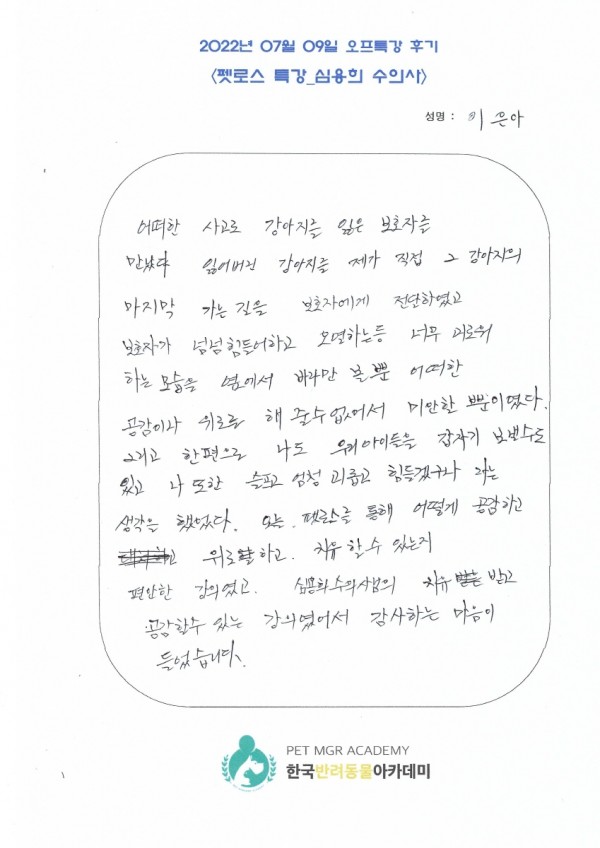 2022년 07월 09일 오프특강 후기
<펫로스 특강_심용희 수의사>
성명 : 이은아
어떠한 사고로 강아지를 잃은 보호자를
만났다 잃어버린 강아지를 제가 직접 그 강아지의
마지막 가는길을 보호자에게 전달하였고
보호자가 넘넘힘들어하고 오열하는등 너무 괴로워
하는 모습을 옆에서 바라만 볼 뿐 어떠한
공감이나 위로를 해 줄수 없어서 미안한 뿐이였다.
그리고 한편으로 나도 우리아이들을 갑자기 보낼수도
있고 나 또한 슬프고 엄청 괴롭고 힘들겠구나 라는
생각을 했었다. 오늘 펫로스를 통해 어떻게 공감하고
위로하고. 치유할수 있는지
편안한 강의였고. 심용희수의사쌤의 치유 받고
공감할수 있는 강의였어서 감사하는 마음이
들었습니다.
PET MGR ACADEMY
한국반려동물아카데미